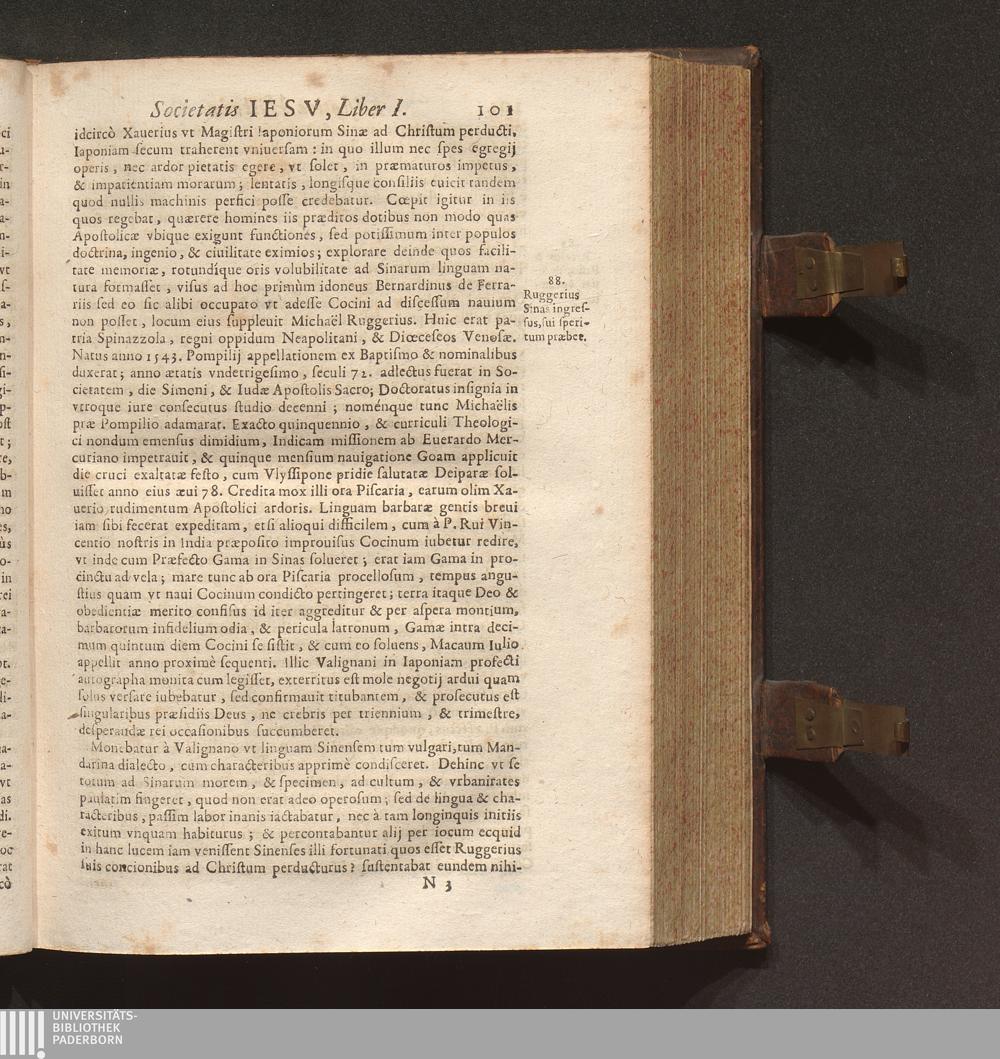 Societatis IESV, Liber I. 101
idcircò Xauerius vt Magistri Iaponiorum Sinæ ad Christum perducti,
Iaponiam secum traherent vniuersam : in quo illum nec spes egregij
operis , nec ardor pietatis egere , vt solet , in præmaturos impetus ,
& impatientiam morarum ; lentatis , longisque consiliis euicit tandem
quod nullis machinis perfici posse credebatur. Cœpit igitur in iis
quos regebat , quærere homines iis præditos dotibus non modo quas
Apostolicæ vbique exigunt functiones , sed potissimum inter populos
doctrina, ingenio, & ciuilitate eximios ; explorare deinde quos facili-
tate memoriæ , rotundíque oris volubilitate ad Sinarum linguam na-
tura formasset , visus ad hoc primùm idoneus Bernardinus de Ferra-
riis sed eo sic alibi occupato vt adesse Cocini ad discessum nauium
non posset , locum eius suppleuit Michaël Ruggerius. Huic erat pa-
tria Spinazzola , regni oppidum Neapolitani , & Diœceseos Venosæ.
Natus anno 1543. Pompilij appellationem ex Baptismo & nominalibus
duxerat ; anno ætatis vndetrigesimo , seculi 72. adlectus fuerat in So-
cietatem , die Simoni , & Iudæ Apostolis Sacro; Doctoratus insignia in
vtroque iure consecutus studio decenni ; noménque tunc Michaëlis
præ Pompilio adamarat. Exacto quinquennio , & curriculi Theologi-
ci nondum emensus dimidium, Indicam missionem ab Euerardo Mer-
curiano impetrauit , & quinque mensium nauigatione Goam applicuit
die cruci exaltatæ festo , cum Vlyssipone pridie salutatæ Deiparæ sol-
uisset anno eius æui 78. Credita mox illi ora Piscaria , earum olim Xa-
uerio rudimentum Apostolici ardoris. Linguam barbaræ gentis breui
iam sibi fecerat expeditam , etsi alioqui difficilem , cum à P. Rui Vin-
centio nostris in India præposito improuisus Cocinum iubetur redire,
vt inde cum Præfecto Gama in Sinas solueret ; erat iam Gama in pro-
cinctu ad vela ; mare tunc ab ora Piscaria procellosum , tempus angu-
stius quam vt naui Cocinum condicto pertingeret ; terra itaque Deo &
obedientiæ merito confisus id iter aggreditur & per aspera montium,
barbarorum infidelium odia , & pericula latronum , Gamæ intra deci-
mum quintum diem Cocini se sistit , & cum eo soluens, Macaum Iulio
appellit anno proximè sequenti. Illic Valignani in Iaponiam profecti
autographa monita cum legisset, exterritus est mole negotij ardui quam
solus versare iubebatur , sed confirmauit titubantem , & prosecutus est
singularibus præsidiis Deus , ne crebris per triennium , & trimestre,
desperandæ rei occasionibus succumberet.
Monebatur à Valignano vt linguam Sinensem tum vulgari, tum Man-
darina dialecto , cum characteribus apprimè condisceret. Dehinc vt se
totum ad Sinarum morem , & specimen , ad cultum , & vrbanitates
paulatim fingeret , quod non erat adeo operosum ; sed de lingua & cha-
racteribus, passim labor inanis iactabatur , nec à tam longinquis initiis
exitum vnquam habiturus ; & percontabantur alij per iocum ecquid
in hanc lucem iam venissent Sinenses illi fortunati quos esset Ruggerius
suis concionibus ad Christum perducturus ? sustentabat eundem nihi-
N 3
88.
Ruggerius
Sinas ingres-
sus, sui speri-
tum præbet.
UNIVERSITÄTS-
BIBLIOTHEK
PADERBORN